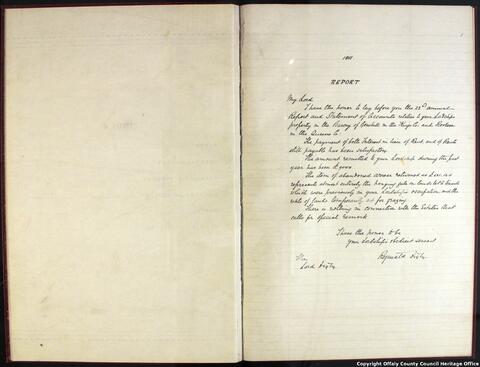 1911
REPORT
My Lord
I have the honor to lay before you the 22nd annual
Report and Statement of Accounts relative to your Lordship's
property in the Barony of Geashill in the King's Co. and
in the Queens Co.
The payment of both Interest in lieu of Rent, and of Rents
still payable has been satisfactory.
The amount remitted to your Lordship during the past
year has been
The item of abandoned arrear returned as
represents almost entirely the hanging gale on lands let
which were previously in your Lordship's occupation and the
rents of lands temporarily let for grazing.
There is nothing in connection with the Estates that
calls for special remark
I have the honor to be
your Lordship's obedient servant
Reginald Digby
The
Lord Digby
Copyright Offaly County Council Heritage Office